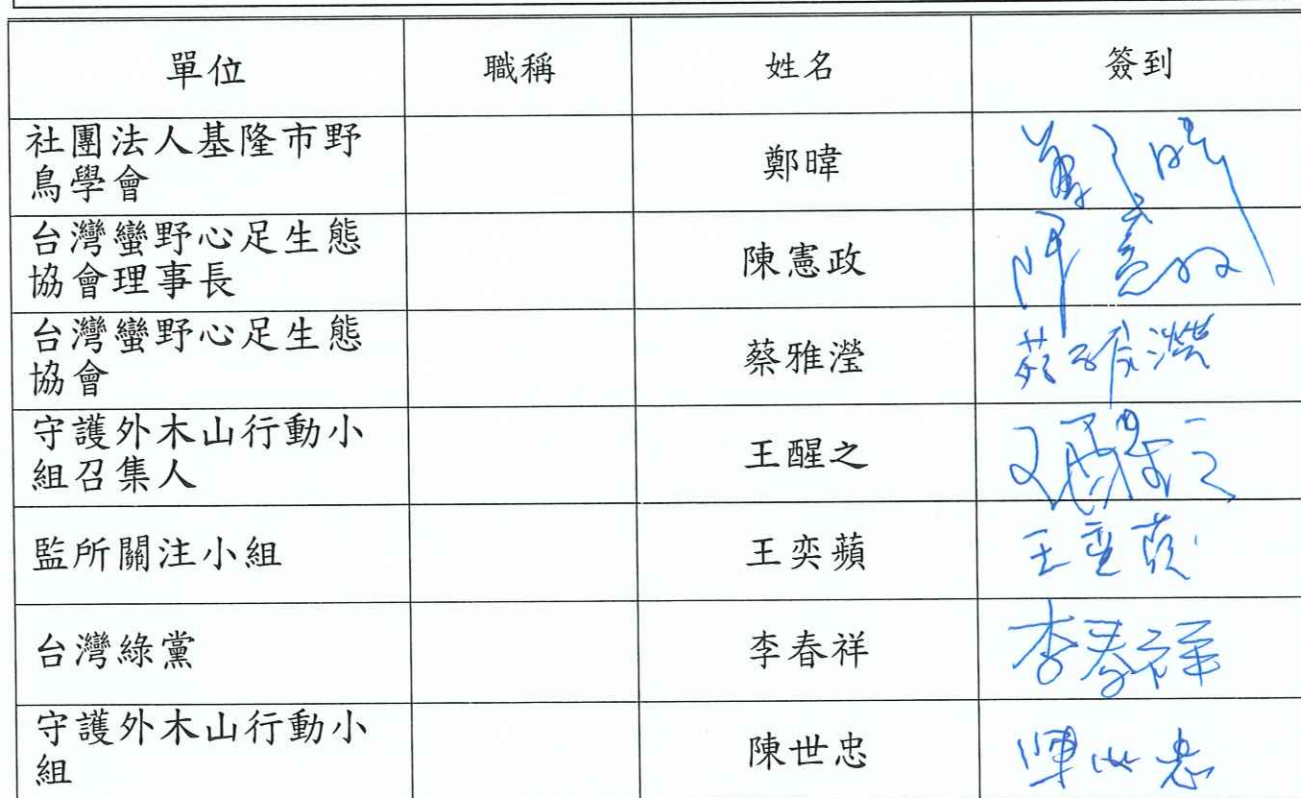 單位 職稱 姓名 簽到
社團法人基隆市野
鳥學會
鄭暐
台灣蠻野心足生態
協會理事長
陳憲政
台灣蠻野心足生態
協會
蔡雅瀅
蔡雅瀅
守護外木山行動小
組召集人
王醒之
王醒之
監所關注小組
王奕蘋
台灣綠黨
李春祥
李春祥
守護外木山行動小
組
陳世忠
陳世忠